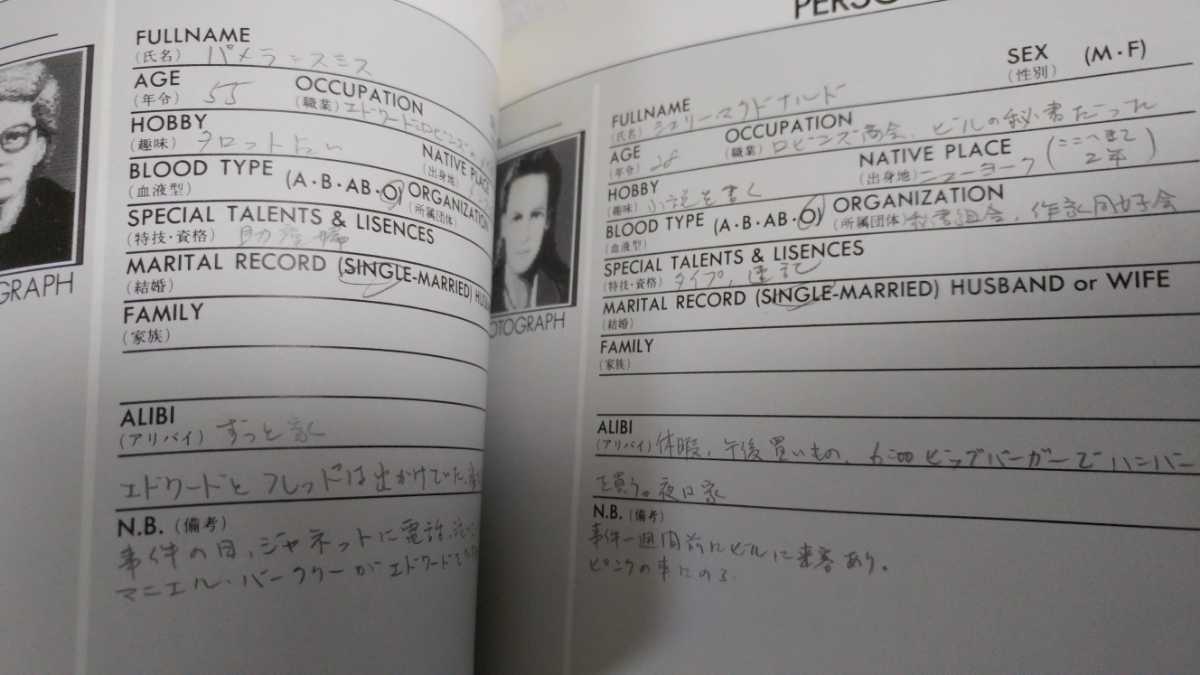 FULLNAME
(氏名) パメラ・スミス
AGE
(年令) 55
OCCUPATION
(職業) エドワード・ロビンズ
HOBBY
(趣味) タロット占い
NATIVE PLACE
(出身地)
BLOOD TYPE (A・B・AB・O)
(血液型)
ORGANIZATION
(所属団体)
SPECIAL TALENTS & LISENCES
(特技・資格) 助産婦
MARITAL RECORD (SINGLE-MARRIED)
(結婚)
FAMILY
(家族)
ALIBI
(アリバイ) ずっと家
エドワードとフレッドは出かけていた、
N.B. (備考)
事件の日、ジャネットに電話、
マニエル・バークリーがエドワードを
GRAPH
PERSO
SEX (M・F)
(性別)
FULLNAME
(氏名) シェリー・マクドナルド
AGE
(年令) 28
OCCUPATION
(職業) ロビンズ商会、ビルの秘書だった
HOBBY
(趣味) 小説を書く
NATIVE PLACE (ここへきて
(出身地) ニューヨーク 2年)
BLOOD TYPE (A・B・AB・O)
(血液型)
ORGANIZATION
(所属団体) 秘書組合、作家同好会
SPECIAL TALENTS & LISENCES
(特技・資格) タイプ、速記
MARITAL RECORD (SINGLE-MARRIED) HUSBAND or WIFE
(結婚)
FAMILY
(家族)
ALIBI
(アリバイ) 休暇、午後買いもの、6:00 ビップバーガーでハンバー
を買う。夜は家
N.B. (備考)
事件一週間前にビルに来客あり。
ピンクの車にのる
OTOGRAPH